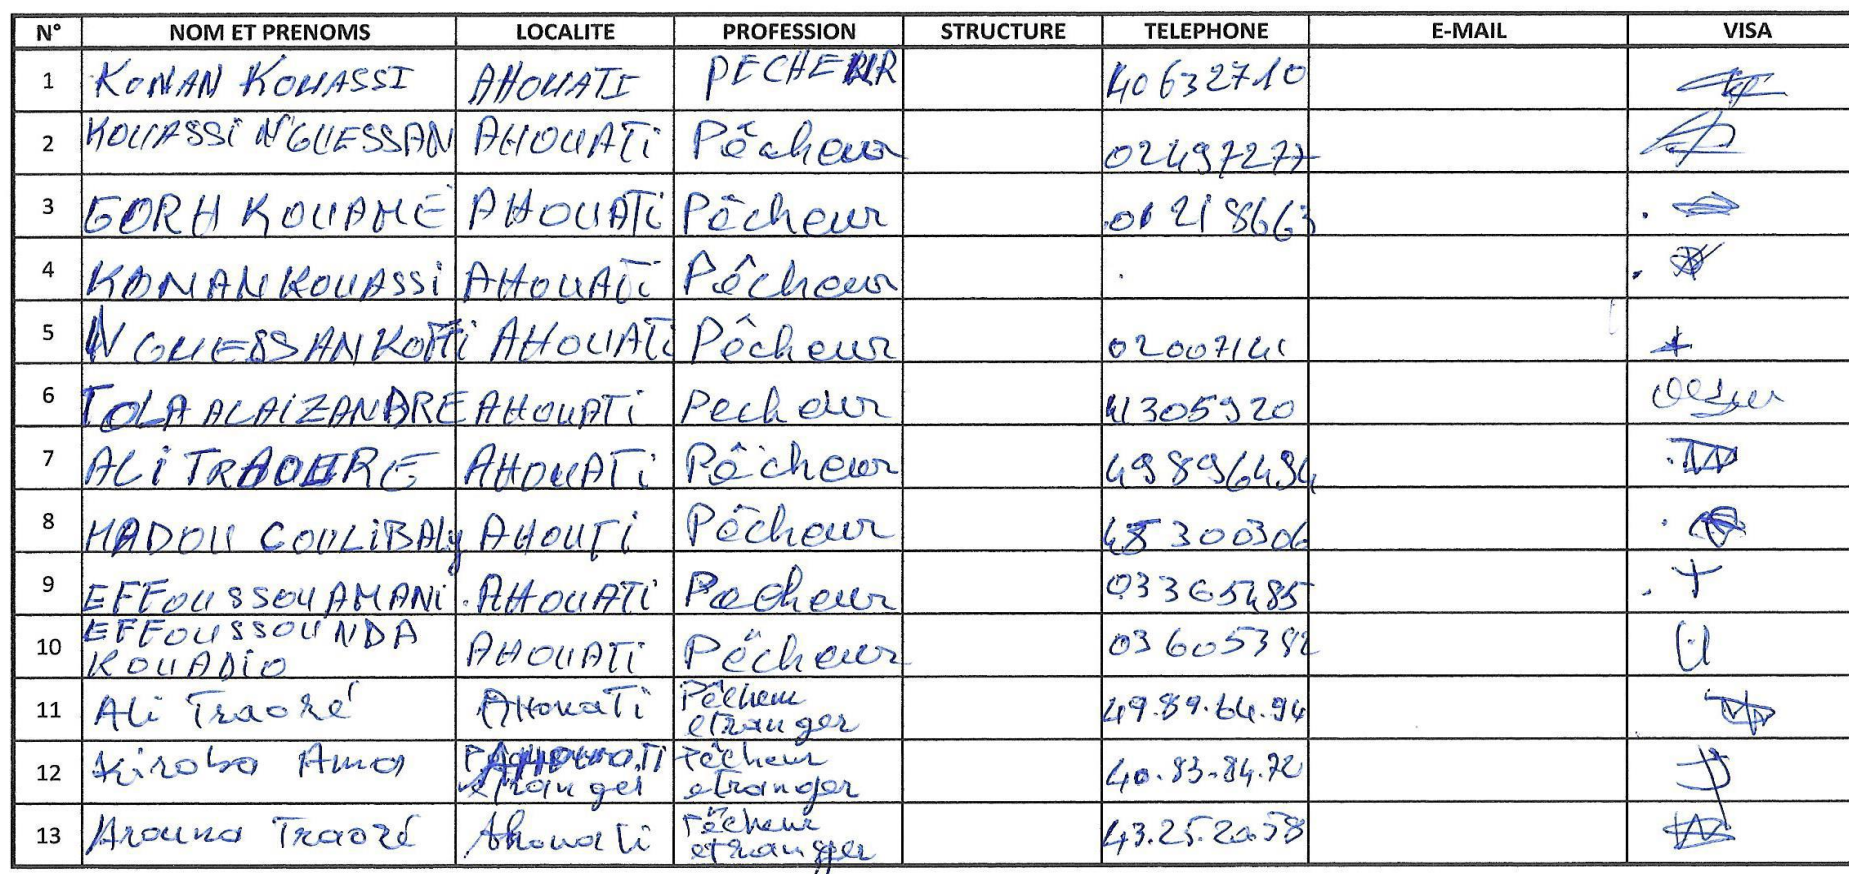 N° NOM ET PRENOMS LOCALITE PROFESSION STRUCTURE TELEPHONE E-MAIL VISA
1 KONAN KOUASSI AHOUATI PECHEUR 40632710
2 KOUASSI N'GUESSAN AHOUATi Pêcheur 02497277
3 GORH KOUAMÉ AHOUATi Pêcheur 01218663
4 KONAN KOUASSi AHOUATi Pêcheur
5 N GUESSAN KOFFi AHOUATi Pêcheur 02007141
6 TOLA ALAIZANDRE AHOUATi Pecheur 41305920
7 ALi TRAOURE AHOUATi Pêcheur 49896494
8 MADOU COULiBALy AHOUTi Pêcheur 45300306
9 EFFOUSSOU AMANi AHOUATi Pecheur 03365485
10 EFFOUSSOU NDA
KOUADiO AHOUATi Pêcheur 03605382
11 Ali Traoré AHouaTi Pêcheur
etranger 49.89.64.94
12 Kiroba Ama Pêcheur
etranger etranger 40.83.84.72
13 Arouna Traoré Ahouati Pêcheur
etranger 43.25.20.58